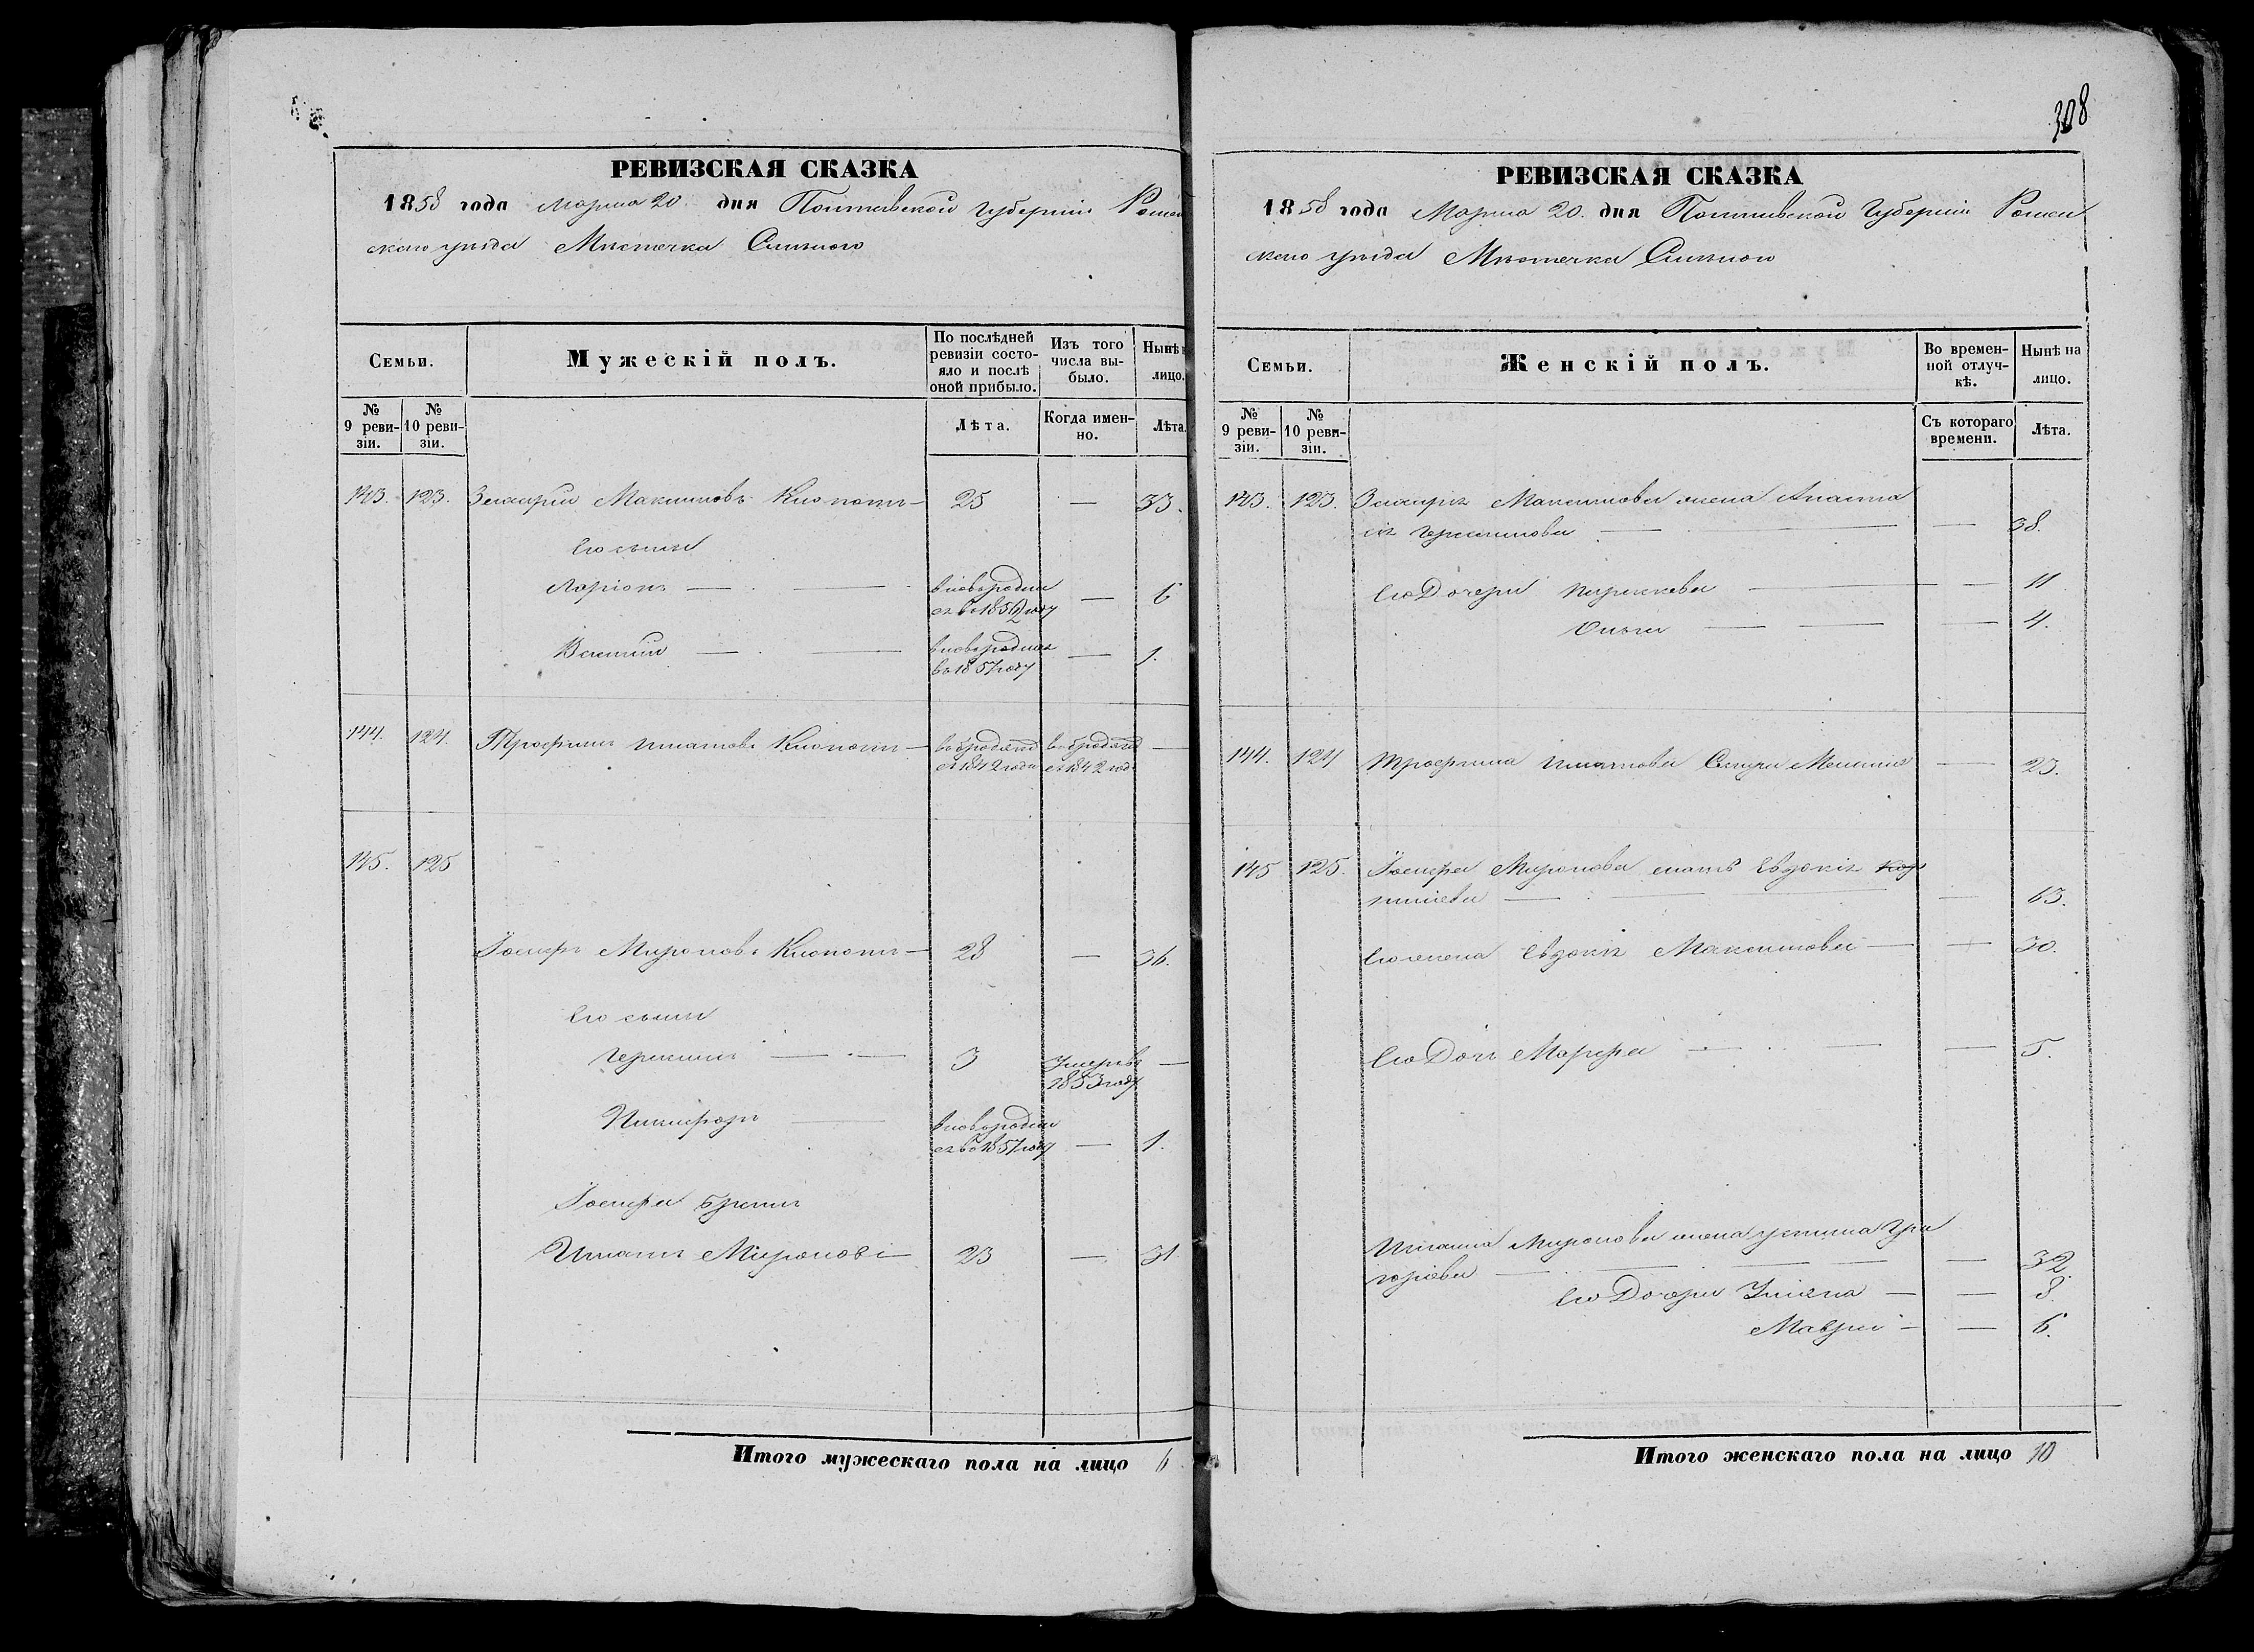 308
РЕВИЗСКАЯ СКАЗКА
1858 года Марта 20 дня Полтавской Губерніи Ромен
скаго уѣзда Мѣстечка Смѣлого
Семьи.
Мужескій полъ.
По послѣдней ревизіи состояло и послѣ оной прибыло.
Изъ того числа выбыло.
Нынѣ на лицо.
№ 9 ревизіи.
№ 10 ревизіи.
Лѣта.
Когда именно.
Лѣта.
143. 123. Захарій Максимовъ Клопотъ 25 — 33.
Его сыны
Ларіонъ — вновьродил
ся въ 1852 году — 6
Василій — вновьродился
въ 1857 году — 1.
144. 124. Трофимъ Игнатовъ Клопотъ —
съ 1842 года съ 1842 год —
145. 125
Іосифъ Мироновъ Клопотъ — 28 — 36.
Его сыны
Герасимъ — 3 Умеръ въ
1853 году —
Никифоръ — вновьродил
ся въ 1857 году — 1.
Іосифа братъ
Игнатъ Мироновъ — 23 — 31
Итого мужескаго пола на лицо 6
РЕВИЗСКАЯ СКАЗКА
1858 года Марта 20. дня Полтавской Губерніи Ромен
скаго уѣзда Мѣстечка Смѣлого
Семьи.
Женскій полъ.
Во временной отлучкѣ.
Нынѣ на лицо.
№ 9 ревизіи.
№ 10 ревизіи.
Съ котораго времени.
Лѣта.
143. 123. Захарія Максимова жена Анаста
сія Герасимова — — 38.
Его Дочери Параскева — — 11
Ольга — — 4.
144. 124 Трофима Игнатова Сестра Меланія — 23.
145 125. Іосифа Миронова мать Евдокія Кор
нѣева — — 63.
Его жена Евдокія Максимова — — 30.
Его Дочь Марфа — — 5.
Игната Миронова жена Устина Гри
горіева — — 32.
Его Дочери Ульяна — — 8
Мавра — — 6.
Итого женскаго пола на лицо 10